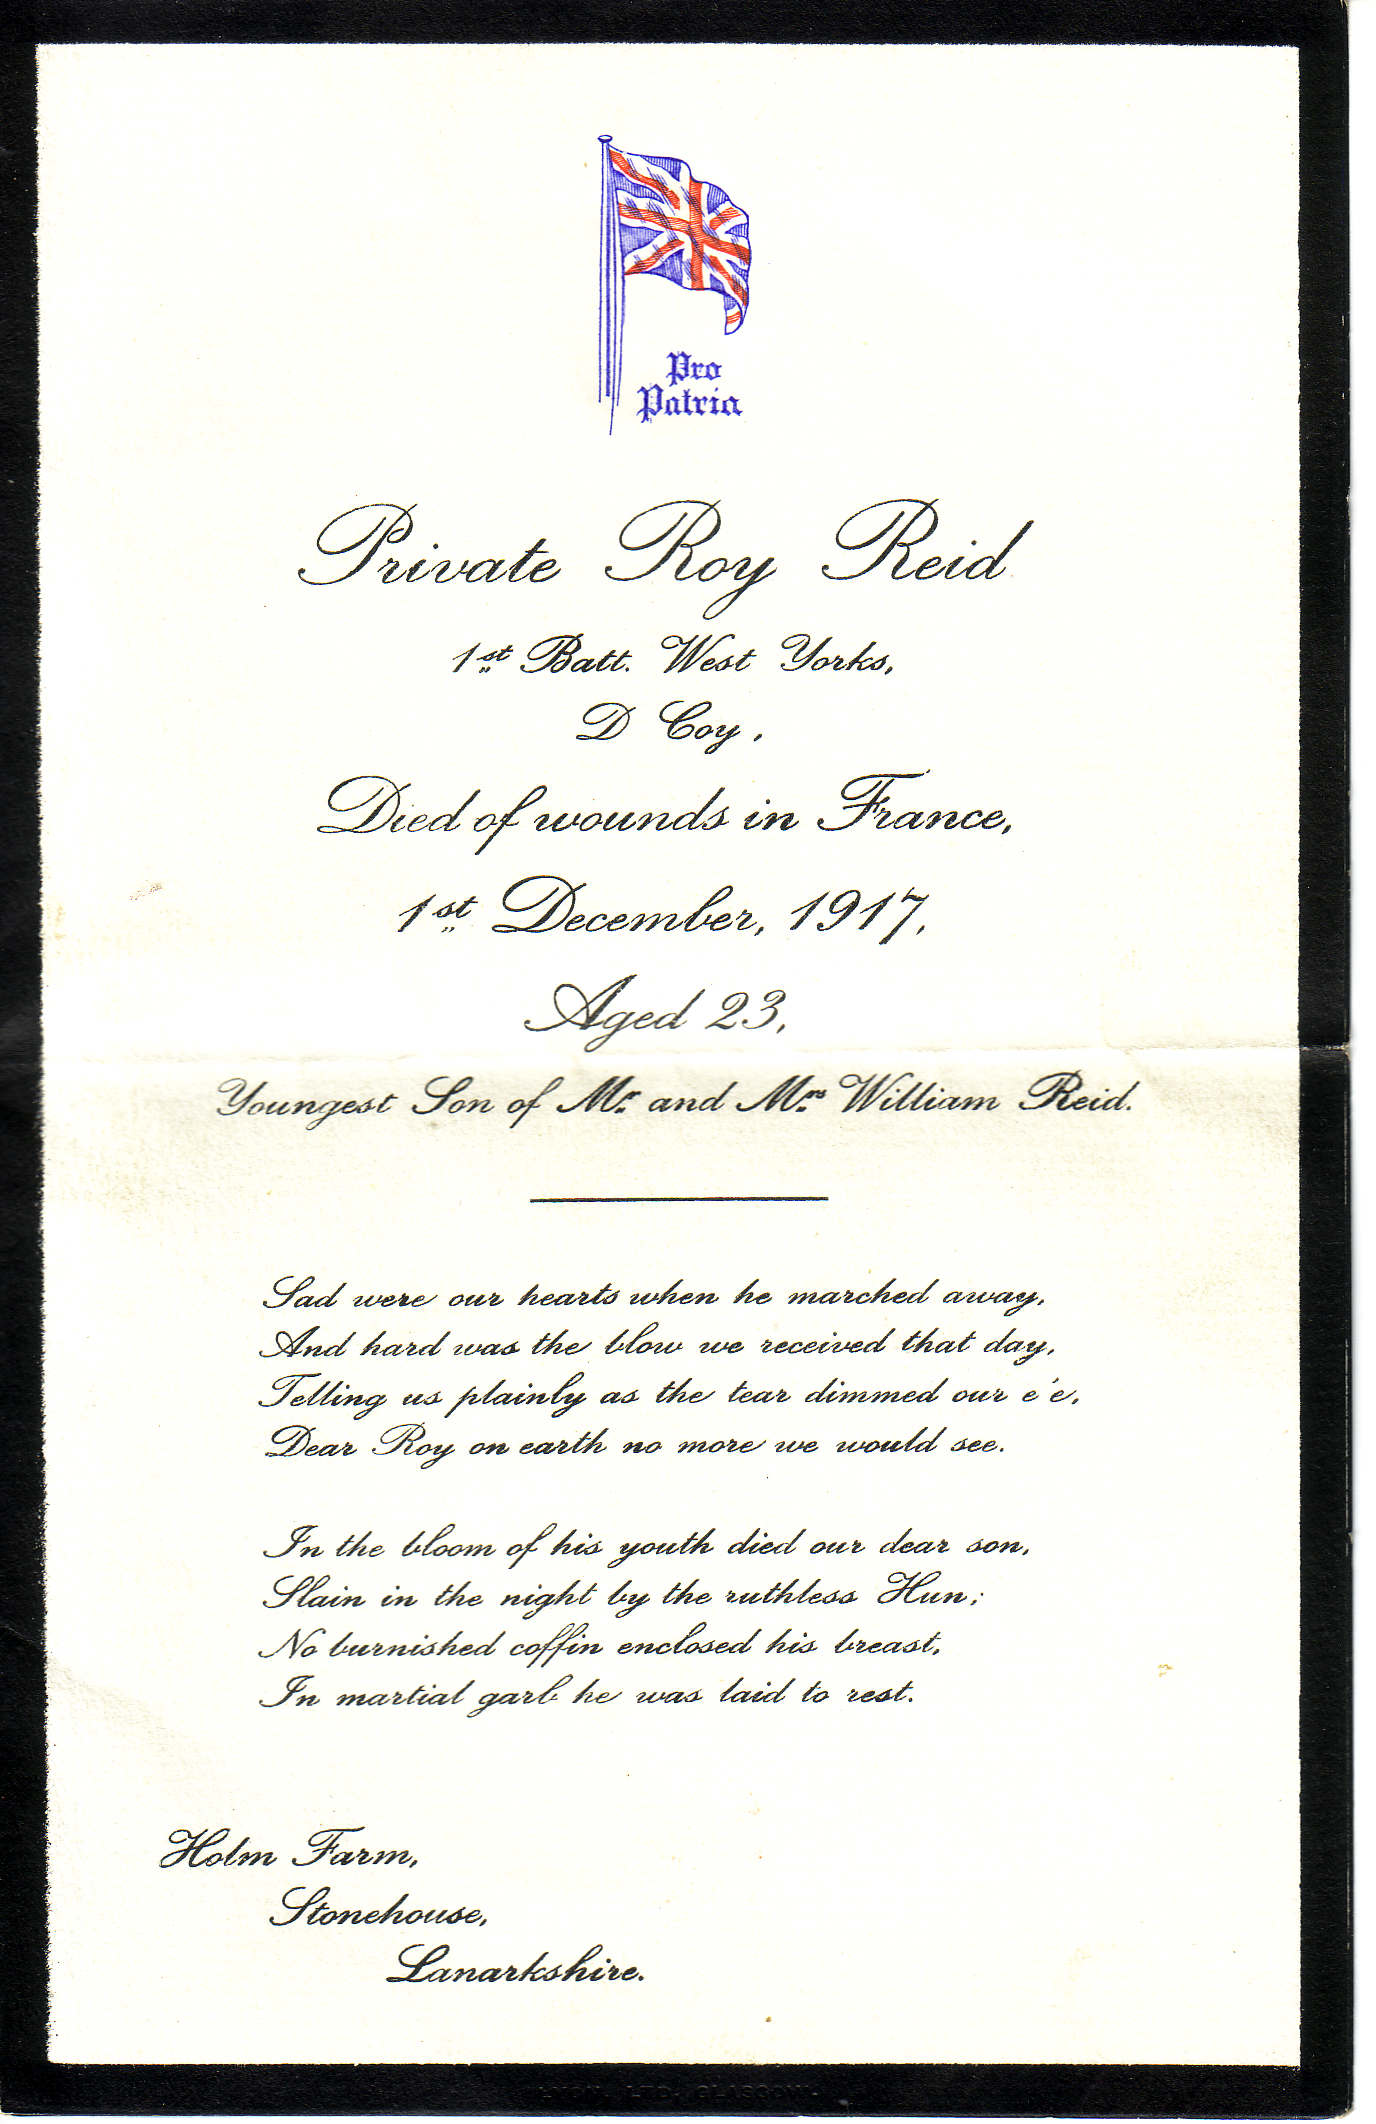 Pro
Patria
Private Roy Reid
1st Batt. West Yorks,
D Coy,
Died of wounds in France,
1st December, 1917,
Aged 23,
Youngest Son of Mr and Mrs William Reid.
Sad were our hearts when he marched away,
And hard was the blow we received that day,
Telling us plainly as the tear dimmed our e'e,
Dear Roy on earth no more we would see.
In the bloom of his youth died our dear son,
Slain in the night by the ruthless Hun;
No burnished coffin enclosed his breast,
In martial garb he was laid to rest.
Holm Farm,
Stonehouse,
Lanarkshire.
LTD. GLASGOW.